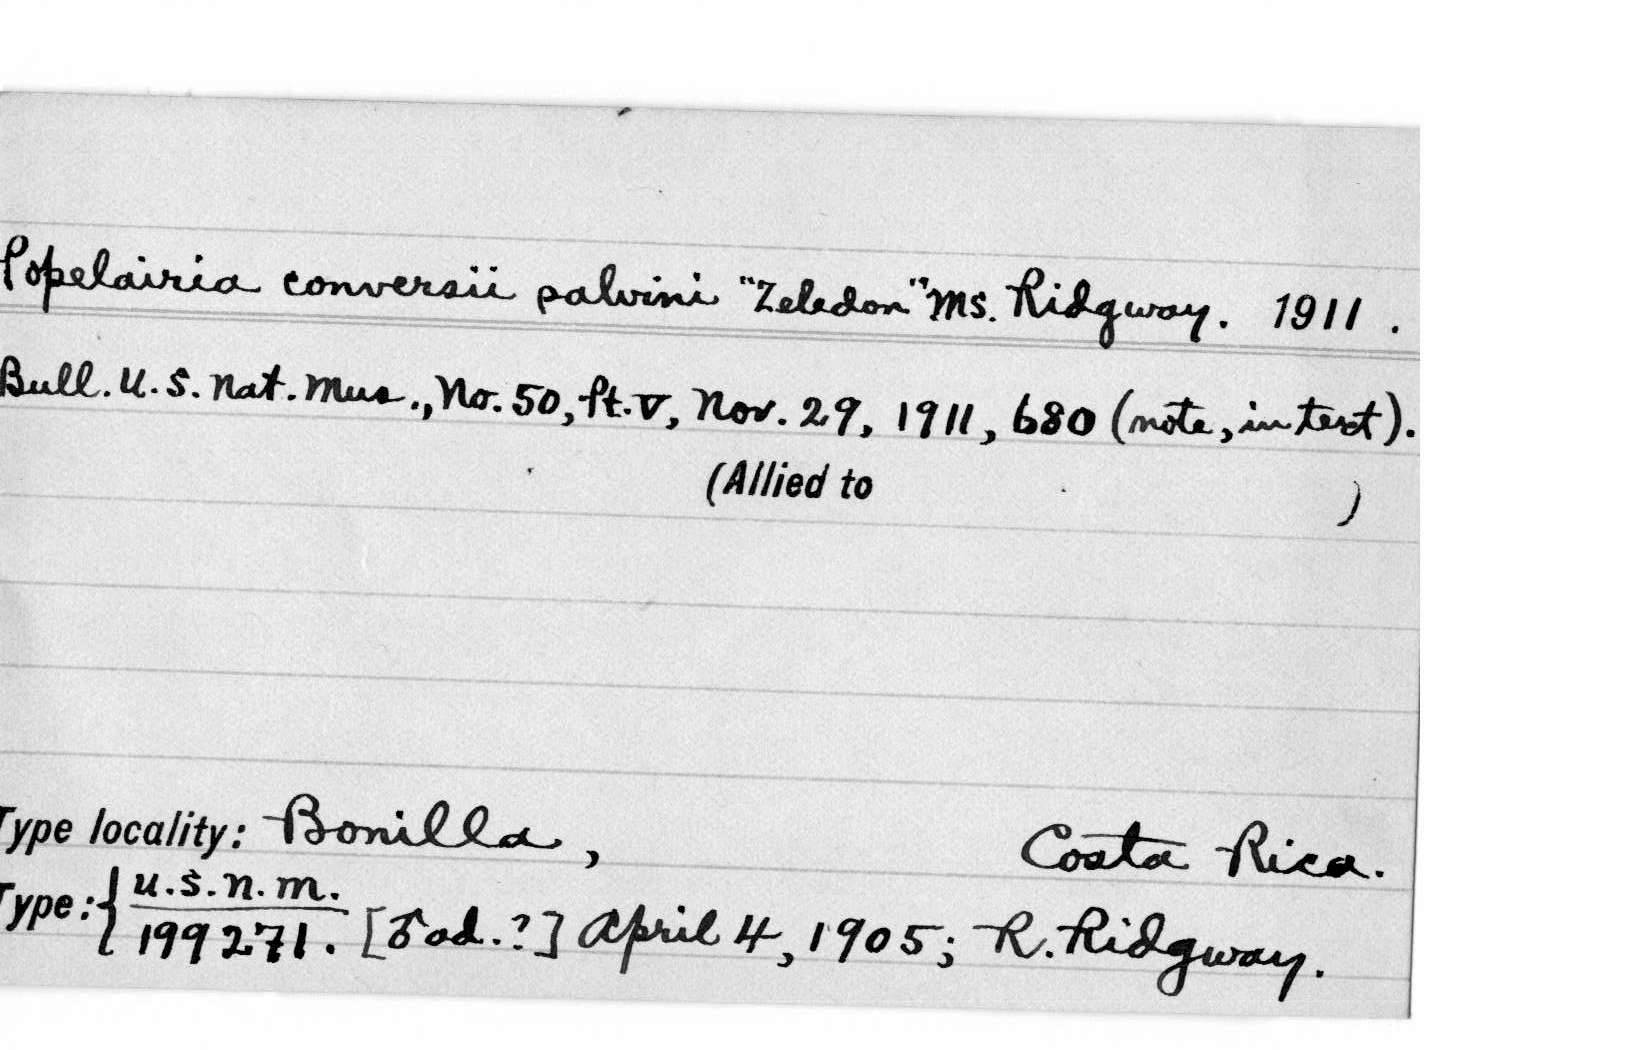 Popelairia conversii salvini "Zeledon" Ms. Ridgway. 1911.
Bull. U.S. Nat. Mus., No. 50, pt. V, Nov. 29, 1911, 680 (note, in text).
(Allied to )
Type locality: Bonilla, Costa Rica.
Type: { U.S.N.M.
199271. [♂ ad.?] April 4, 1905; R. Ridgway.